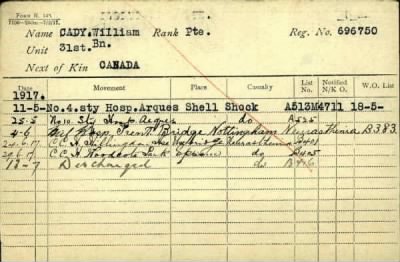 Form B. 103.
Name CADY, William Rank Pte. Reg. No. 696750
Unit 31st. Bn.
Next of Kin CANADA
Date Movement Place Casualty List No. Notified N/O K. W.O. List
1917.
11-5- No.4. sty Hosp. Arques Shell Shock A513M4711 18-5-
25-5 No 10. Sty Hosp Arques do A525
4-6 Mil Hosp. Trent Bridge Nottingham Neurasthenia B383.
24.6.17 C.C.H. Hillingdon Hse Uxbridge Neurasthenia
20.6.17 C.C.H. Woodcote Park Epsom do B405
13-7 Discharged do